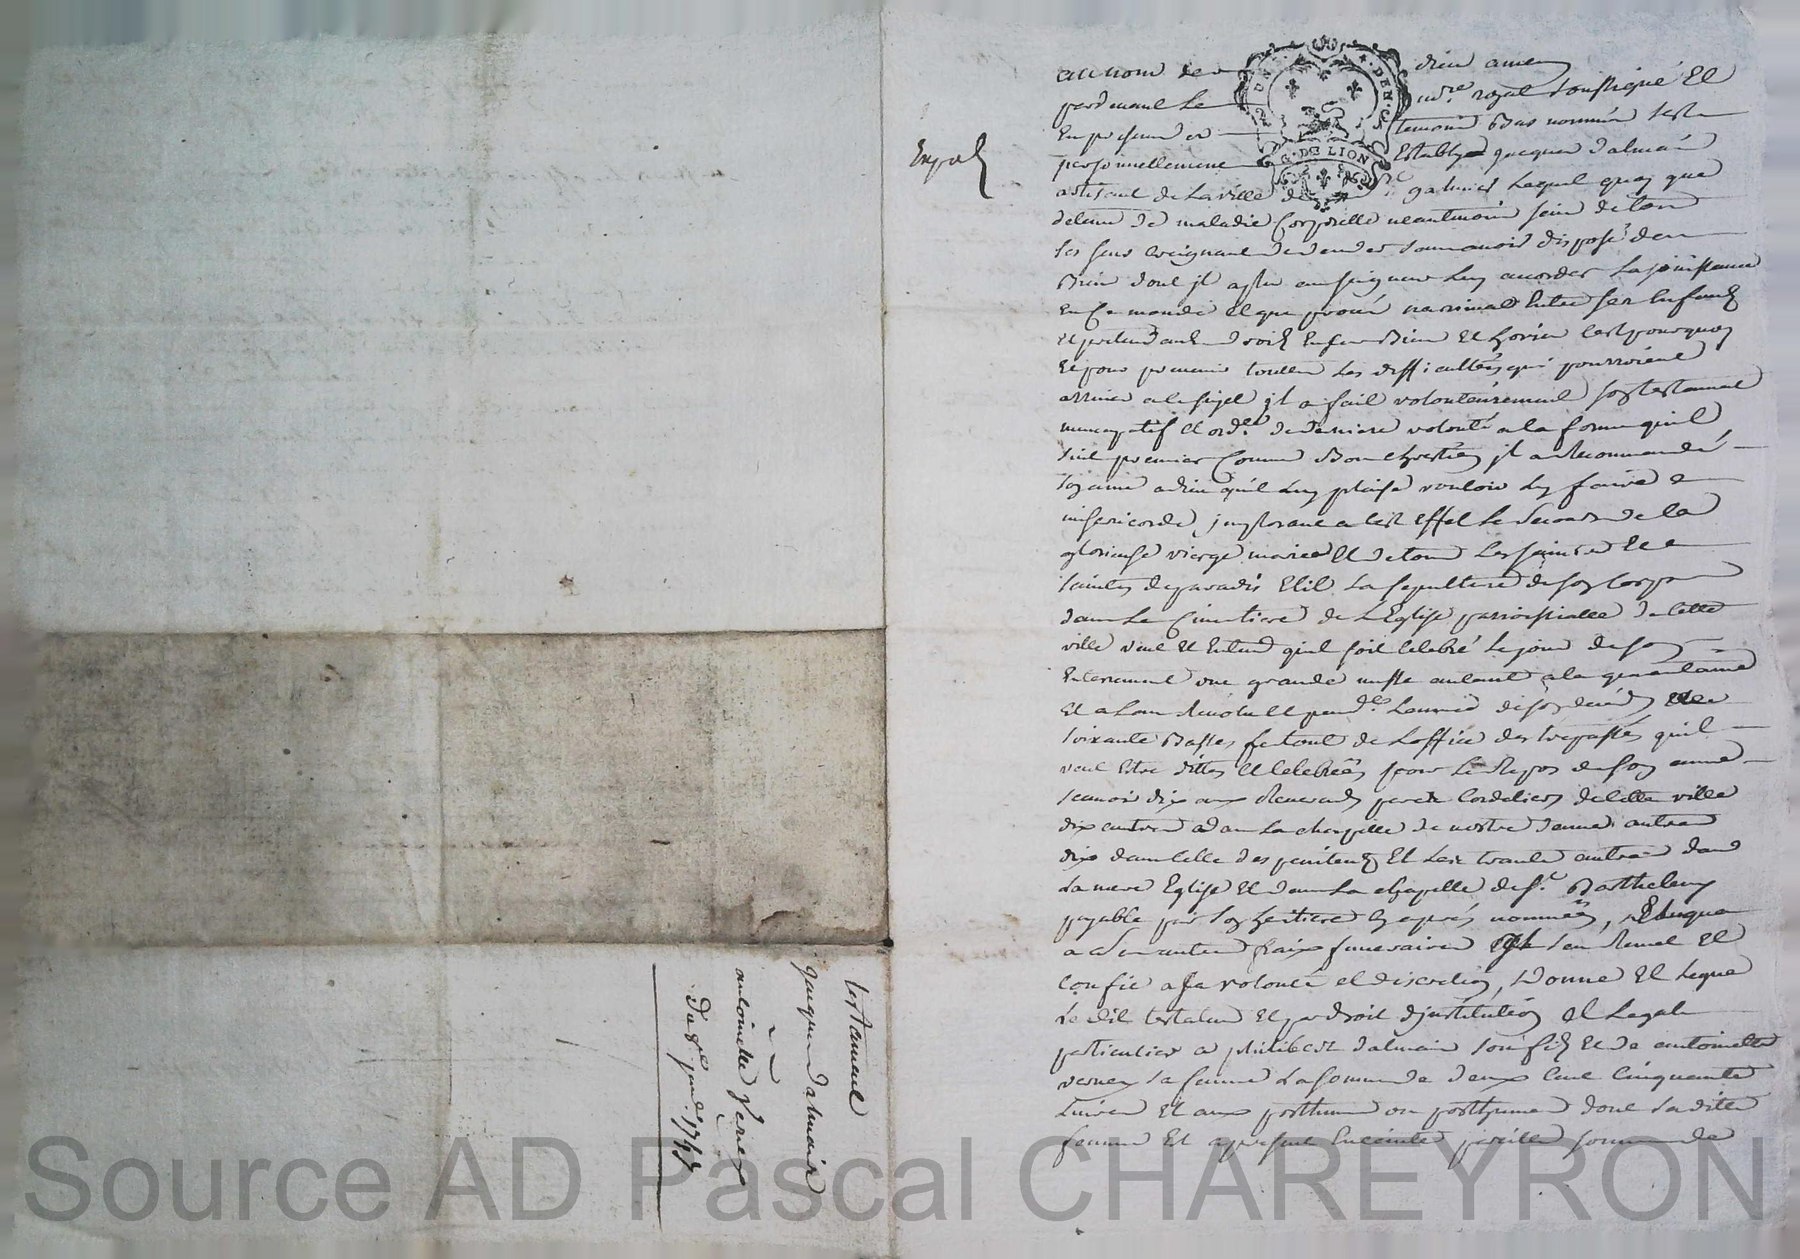 au nom de dieu amen
pardevant le no.re royal soussigné Et
En presence des temoins Bas nommés s'est
personnellement Estably jacques dalmais
G. DE LION
Expé
artisant de la ville de St galmier Lequel quoy que
detenu de maladie Corporelle neantmoins sein de tous
ses sens Craignant de deceder sans avoir disposé des
Biens dont jl a plu au seigneur luy accorder La jouissance
En Ce monde Et que procés n'arrivat Entre ses Enfants
Et pretendants droit En ses Biens Et hoirie C'est pourquoy
Et pour prevenir touttes Les difficultées qui pourroient
arriver a ce sujet jl a fait volontairement son testament
nuncupatif Et ord.ce de derniere volonté a la forme qu'il
suit premier Comme Bon chrestien jl a Recommandé
son ame a dieu qu'il luy plaise vouloir luy faire
misericorde, jmplorant a Cest Effet Le secours de la
glorieuse vierge marie Et de tous Les saints Et
saintes de paradis Elit La sepulture de son Corps
dans Le Cimetiere de L'Eglise parroissialle de Cette
ville veut Et Entend qu'il soit Celebré Le jour de son
Enterrement une grande messe autant a la quarantaine
Et a L'an Revolu Et pend.t L'année de son decés
soixante Basses de L'office des trepassés qu'il
veut Estre dittes Et Celebrées pour Le Repos de son ame
scavoir dix aux Reverends peres Cordeliers de Cette ville
dix autres dans La chapelle de nostre dame autres
dix dans Celle des penitents Et Les trante autres dans
La mere Eglise Et dans La chapelle de St. Barthelemy
payable par son heritiere Cy aprés nommée, Et quant
a ses autres fraix funeraires jl s'en Remet Et
Confie a sa volonté et discretion, Donne Et Legue
Le dit testateur Et par droit d'jnstitution Et Legat
particulier a philibert dalmais son fils Et de antoinette
verney sa femme La somme de deux Cent Cinquante
Livres Et aux posthume ou posthumes dont sa ditte
femme Et a present Enceinte pareille somme de
testament
jacques dalmais
a
antoinette verney
Du 8e janv. 1747
Source AD Pascal CHAREYRON